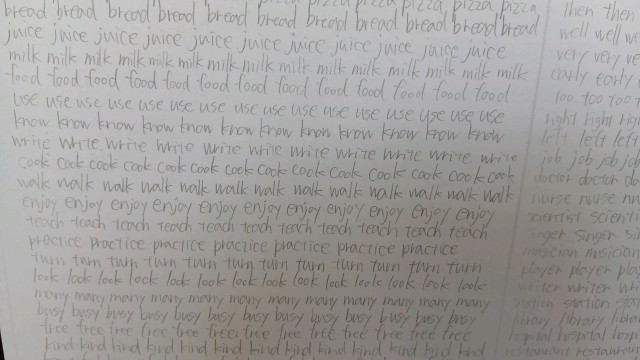 pizza pizza pizza pizza
bread bread bread bread bread bread bread bread bread bread bread
juice juice juice juice juice juice juice juice juice juice
milk milk milk milk milk milk milk milk milk milk milk milk milk
food food food food food food food food food food food
use use use use use use use use use use use use use
know know know know know know know know know know know
write write write write write write write write write write write
cook cook cook cook cook cook cook cook cook cook cook cook
walk walk walk walk walk walk walk walk walk walk walk
enjoy enjoy enjoy enjoy enjoy enjoy enjoy enjoy enjoy enjoy
teach teach teach teach teach teach teach teach teach teach
practice practice practice practice practice practice practice
turn turn turn turn turn turn turn turn turn turn turn
look look look look look look look look look look look look
many many many many many many many many many many many
busy busy busy busy busy busy busy busy busy busy busy
free free free free free free free free free free
kind kind kind kind kind kind kind kind kind kind
then then
well well we
very very ve
early early
too too too
right right righ
left left left
job job job jo
doctor doctor do
nurse nurse nu
scientist scienti
singer singer sin
musician musician
player player pla
writer writer wri
station station sta
library library librar
hospital hospital hosp
restauran